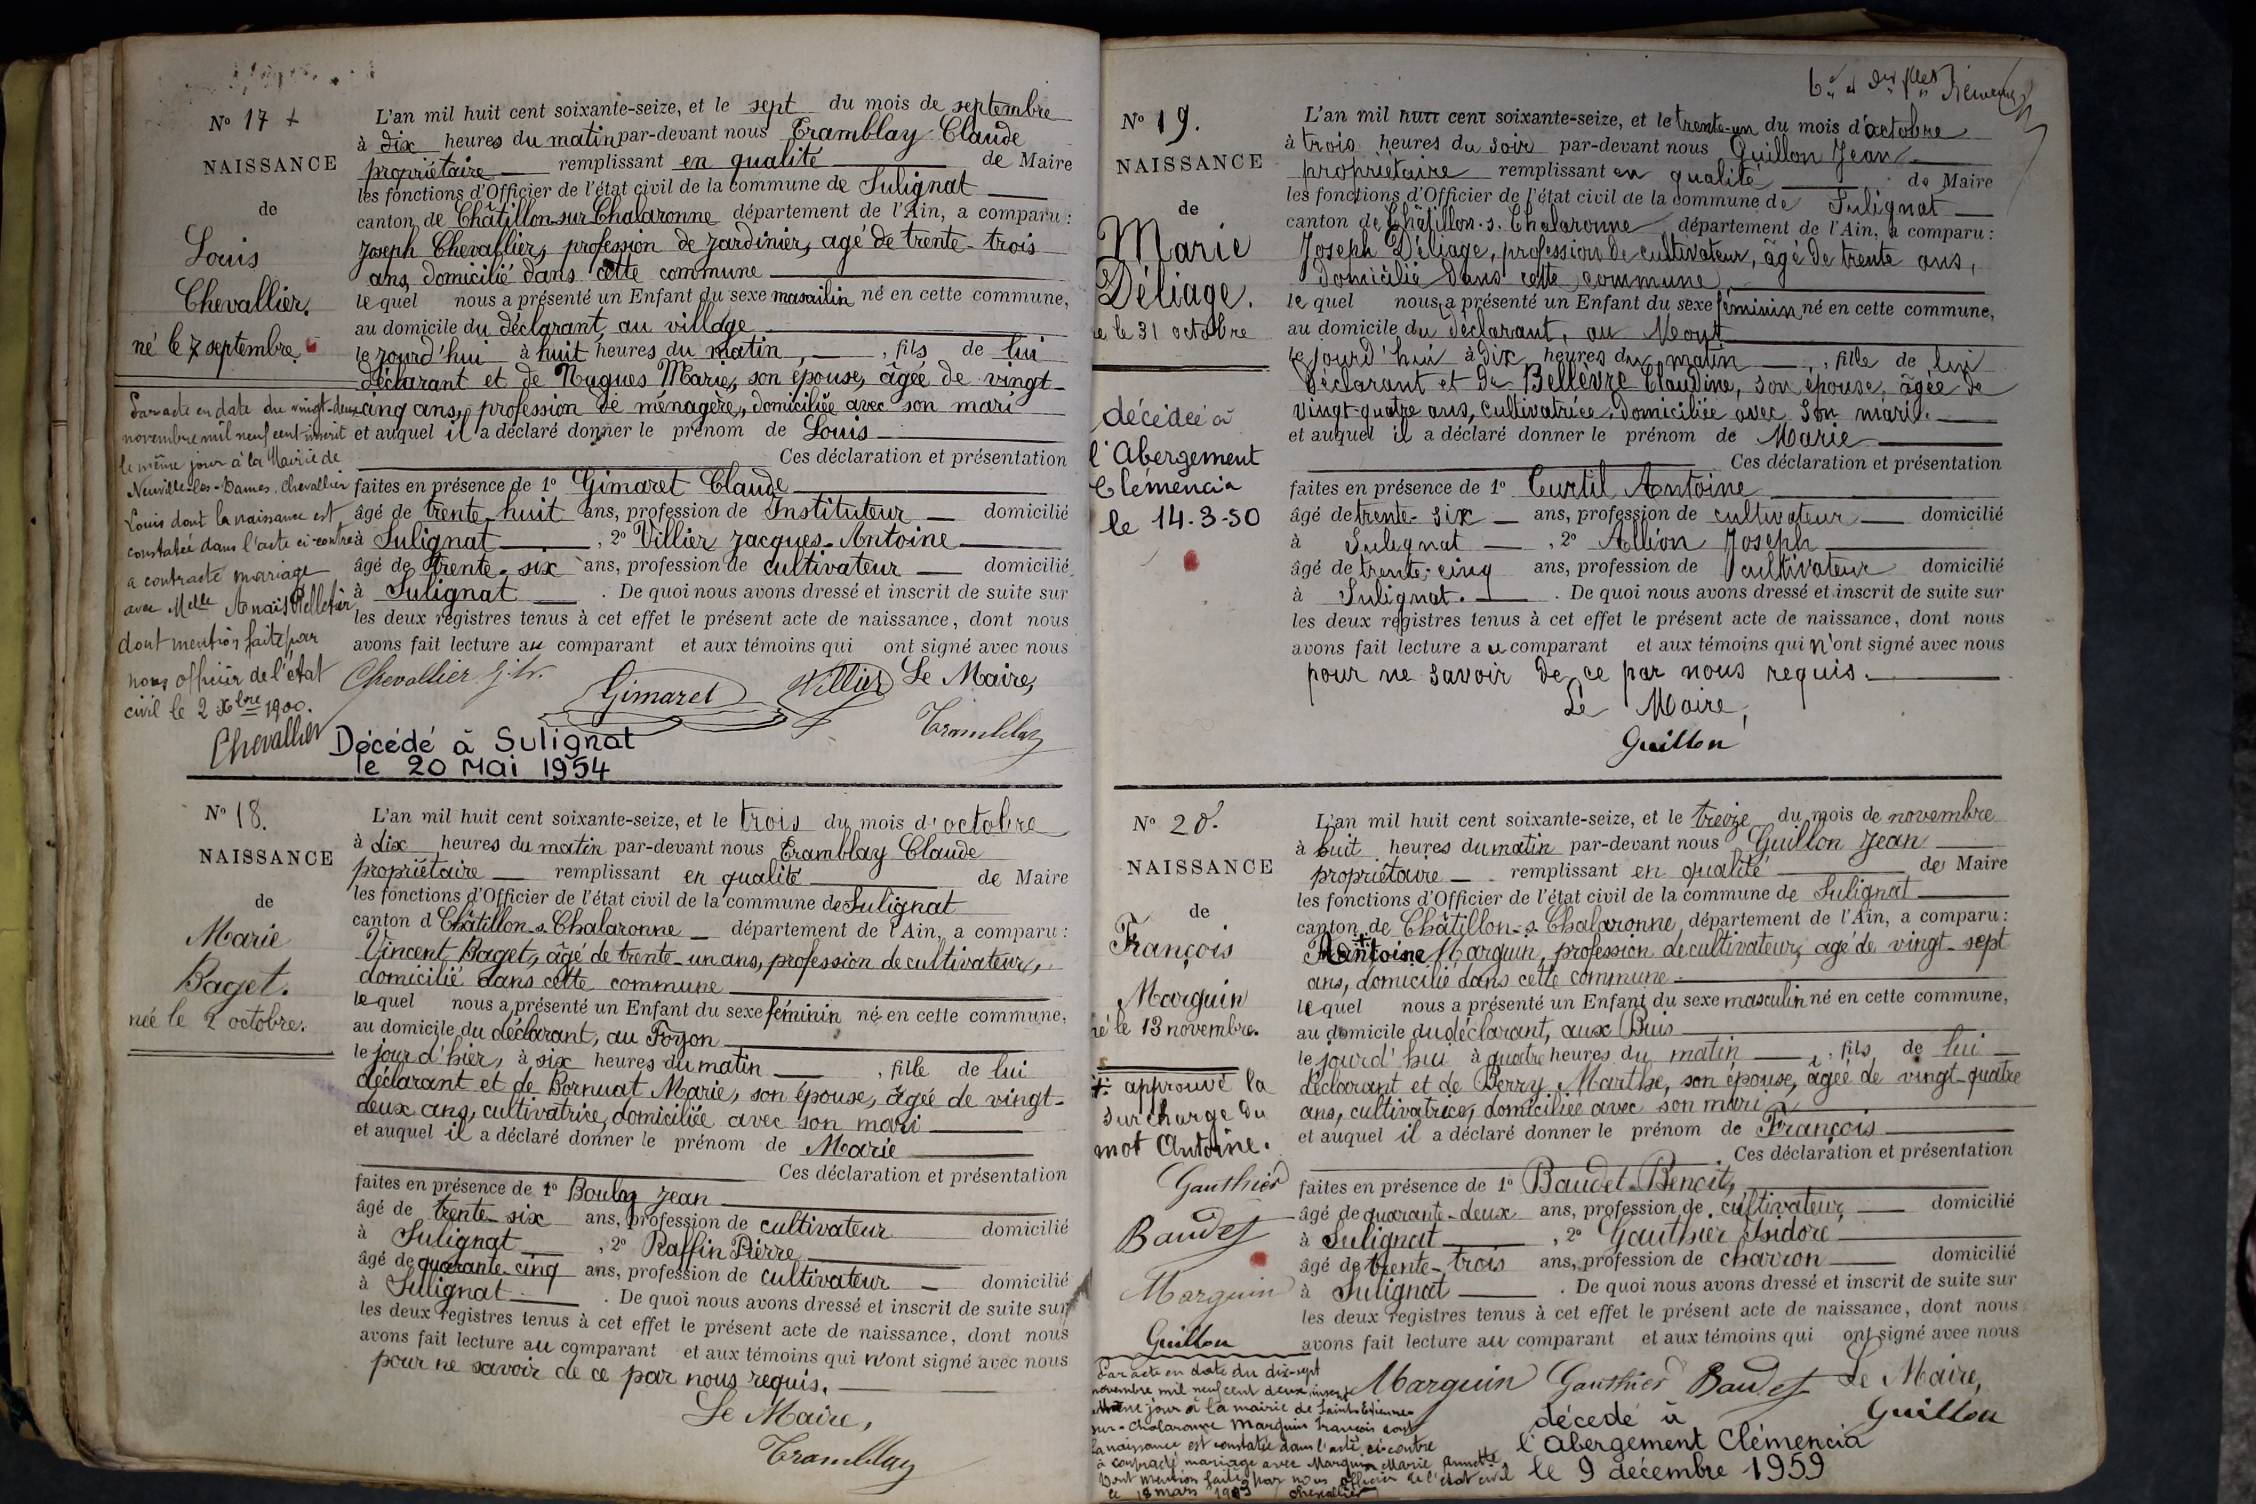 N° 17 +
NAISSANCE
de
Louis
Chevallier.
né le 7 septembre.
Par acte en date du vingt-deux
novembre mil neuf cent inscrit
le même jour à la Mairie de
Neuville-les-Dames, Chevallier
Louis dont la naissance est
constatée dans l'acte ci-contre
a contracté mariage
avec Melle Anaïs Pelletier
dont mention faite par
nous officier de l'état
civil le 2 Xbre 1900.
Chevallier
L'an mil huit cent soixante-seize, et le sept du mois de septembre
à dix heures du matin par-devant nous Tramblay Claude
propriétaire remplissant en qualité de Maire
les fonctions d'Officier de l'état civil de la commune de Sulignat
canton de Châtillon-sur-Chalaronne département de l'Ain, a comparu :
Joseph Chevallier, profession de jardinier, agé de trente-trois
ans, domicilié dans cette commune
lequel nous a présenté un Enfant du sexe masculin né en cette commune,
au domicile du déclarant, au village
le jourd'hui à huit heures du matin, , fils de lui
déclarant et de Nugues Marie, son épouse, âgée de vingt-
cinq ans, profession de ménagère, domiciliée avec son mari
et auquel il a déclaré donner le prénom de Louis
Ces déclaration et présentation
faites en présence de 1° Gimaret Claude
âgé de trente-huit ans, profession de Instituteur domicilié
à Sulignat , 2° Villier Jacques-Antoine
âgé de trente-six ans, profession de cultivateur domicilié
à Sulignat . De quoi nous avons dressé et inscrit de suite sur
les deux registres tenus à cet effet le présent acte de naissance, dont nous
avons fait lecture au comparant et aux témoins qui ont signé avec nous
Chevallier Gimaret Villier Le Maire,
Tramblay
Décédé à Sulignat
le 20 Mai 1954
N° 18.
NAISSANCE
de
Marie
Baget.
née le 2 octobre.
L'an mil huit cent soixante-seize, et le trois du mois d'octobre
à dix heures du matin par-devant nous Tramblay Claude
propriétaire remplissant en qualité de Maire
les fonctions d'Officier de l'état civil de la commune de Sulignat
canton d Châtillon-s-Chalaronne département de l'Ain, a comparu :
Vincent Baget, âgé de trente-un ans, profession de cultivateur,
domicilié dans cette commune
lequel nous a présenté un Enfant du sexe féminin né en cette commune,
au domicile du déclarant, au Foyon
le jour d'hier, à six heures du matin , fille de lui
déclarant et de Bornuat Marie, son épouse, âgée de vingt-
deux ans, cultivatrice, domiciliée avec son mari
et auquel il a déclaré donner le prénom de Marie
Ces déclaration et présentation
faites en présence de 1° Boulay Jean
âgé de trente-six ans, profession de cultivateur domicilié
à Sulignat , 2° Raffin Pierre
âgé de quarante-cinq ans, profession de cultivateur domicilié
à Sulignat . De quoi nous avons dressé et inscrit de suite sur
les deux registres tenus à cet effet le présent acte de naissance, dont nous
avons fait lecture au comparant et aux témoins qui n'ont signé avec nous
pour ne savoir de ce par nous requis.
Le Maire,
Tramblay
N° 19.
NAISSANCE
de
Marie
Déliage.
le 31 octobre
décédée à
l'Abergement
Clémencia
le 14.3-50
L'an mil huit cent soixante-seize, et le trente-un du mois d'octobre
à trois heures du soir par-devant nous Guillon Jean
propriétaire remplissant en qualité de Maire
les fonctions d'Officier de l'état civil de la commune de Sulignat
canton de Châtillon-s-Chalaronne département de l'Ain, a comparu :
Joseph Déliage, profession de cultivateur, âgé de trente ans,
domicilié dans cette commune
lequel nous a présenté un Enfant du sexe féminin né en cette commune,
au domicile du déclarant, au
le jourd'hui à dix heures du matin , fille de lui
déclarant et de Bellèvre Claudine, son épouse, âgée de
vingt-quatre ans, cultivatrice, domiciliée avec son mari.
et auquel il a déclaré donner le prénom de Marie
Ces déclaration et présentation
faites en présence de 1° Curtil Antoine
âgé de trente-six ans, profession de cultivateur domicilié
à Sulignat , 2° Allion Joseph
âgé de trente-cinq ans, profession de cultivateur domicilié
à Sulignat. . De quoi nous avons dressé et inscrit de suite sur
les deux registres tenus à cet effet le présent acte de naissance, dont nous
avons fait lecture au comparant et aux témoins qui n'ont signé avec nous
pour ne savoir de ce par nous requis.
Le Maire,
Guillon
N° 20.
NAISSANCE
de
François
Marguin
né le 13 novembre.
+: approuvé la
surcharge du
mot Antoine.
Gauthier
Baudet
Marguin
Guillon
Par acte en date du dix-sept
novembre mil neuf cent deux, inscrit
même jour à la mairie de Saint-Etienne-
sur-Chalaronne Marguin François dont
la naissance est constatée dans l'acte ci-contre
à contracté mariage avec Marguin Marie Annette
dont mention faite par nous officier de l'état civil
le 18 mars 1903 Chevallier
L'an mil huit cent soixante-seize, et le treize du mois de novembre
à huit heures du matin par-devant nous Guillon Jean
propriétaire remplissant en qualité de Maire
les fonctions d'Officier de l'état civil de la commune de Sulignat
canton de Châtillon-s-Chalaronne, département de l'Ain, a comparu :
Antoine + Marguin, profession de cultivateur, agé de vingt-sept
ans, domicilié dans cette commune
lequel nous a présenté un Enfant du sexe masculin né en cette commune,
au domicile du déclarant, aux Buis
le jourd'hui à quatre heures du matin , fils de lui
déclarant et de Perry Marthe, son épouse, âgée de vingt-quatre
ans, cultivatrice, domiciliée avec son mari
et auquel il a déclaré donner le prénom de François
Ces déclaration et présentation
faites en présence de 1° Baudet Benoit,
âgé de quarante-deux ans, profession de cultivateur domicilié
à Sulignat , 2° Gauthier Isidore
âgé de trente-trois ans, profession de charron domicilié
à Sulignat . De quoi nous avons dressé et inscrit de suite sur
les deux registres tenus à cet effet le présent acte de naissance, dont nous
avons fait lecture au comparant et aux témoins qui ont signé avec nous
Marguin Gauthier Baudet Le Maire,
Guillon
décédé à
l'Abergement Clémencia
le 9 décembre 1959